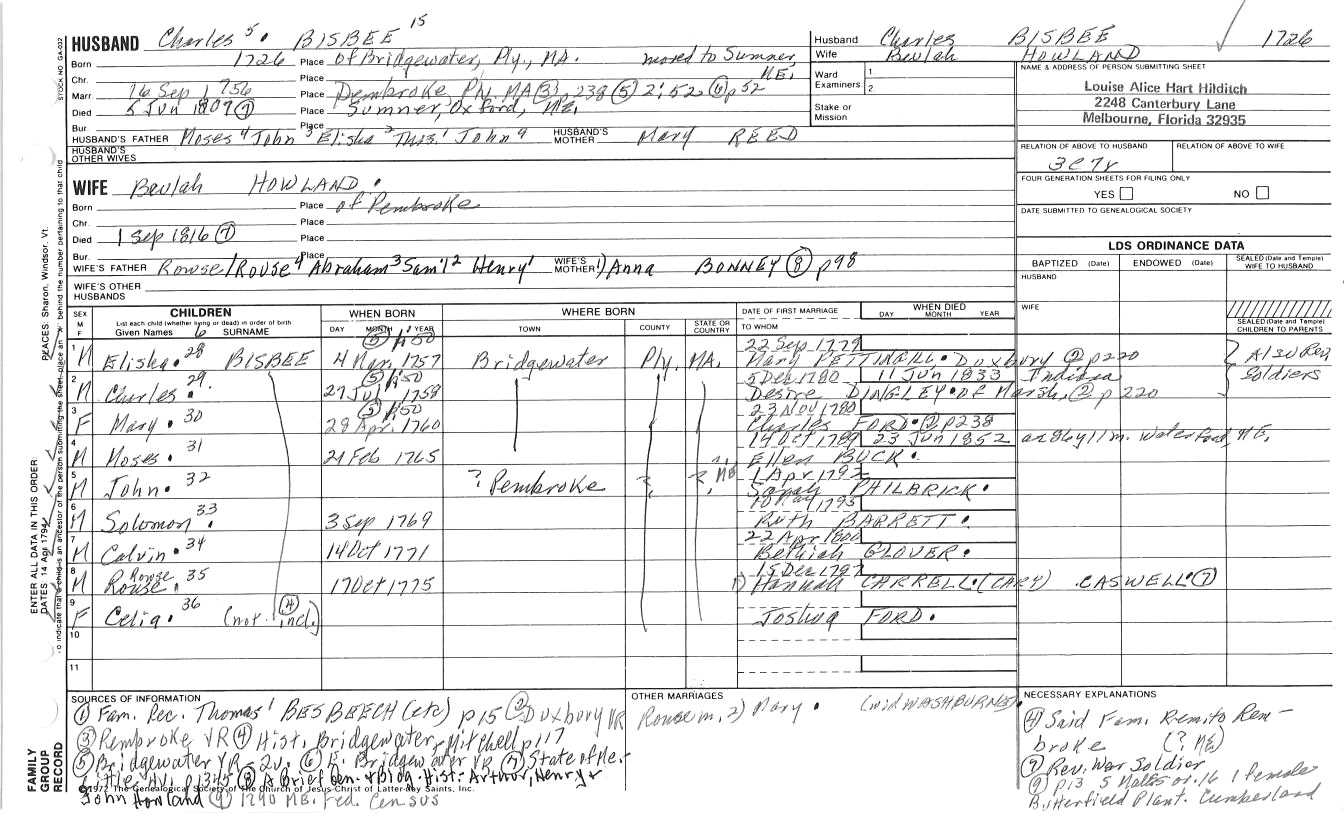 15
HUSBAND Charles 5. BISBEE
Born 1726 Place of Bridgewater, Ply., MA. moved to Sumner
Chr. Place ME.
Marr 16 Sep 1756 Place Pembroke Ply, MA (3), 238 (5) 2:52 (6) p52
Died 5 Jun 1807 (7) Place Sumner, Oxford, ME.
Bur Place
HUSBAND'S FATHER Moses 4 John 3 Elisha 2 Thos. 1 John 4 HUSBAND'S MOTHER Mary REED
HUSBAND'S OTHER WIVES
Husband Charles BISBEE 1726
Wife Beulah HOWLAND
Ward Examiners 1 2
Stake or Mission
NAME & ADDRESS OF PERSON SUBMITTING SHEET
Louise Alice Hart Hilditch
2248 Canterbury Lane
Melbourne, Florida 32935
RELATION OF ABOVE TO HUSBAND RELATION OF ABOVE TO WIFE
3C7r
FOUR GENERATION SHEETS FOR FILING ONLY
YES NO
DATE SUBMITTED TO GENEALOGICAL SOCIETY
WIFE Beulah HOWLAND.
Born Place of Pembroke
Chr. Place
Died 1 Sep 1816 (7) Place
Bur. Place
WIFE'S FATHER Rowse/Rouse 4 Abraham 3 Sam'l 2 Henry 1 WIFE'S MOTHER 1) Anna BONNEY (8) p98
WIFE'S OTHER HUSBANDS
LDS ORDINANCE DATA
BAPTIZED (Date) ENDOWED (Date) SEALED (Date and Temple) WIFE TO HUSBAND
HUSBAND
WIFE
SEALED (Date and Temple) CHILDREN TO PARENTS
SEX M F CHILDREN WHEN BORN WHERE BORN DATE OF FIRST MARRIAGE WHEN DIED
List each child (whether living or dead) in order of birth
Given Names 6 SURNAME DAY MONTH YEAR TOWN COUNTY STATE OR COUNTRY TO WHOM DAY MONTH YEAR
(5) p:50 22 Sep 1779
1 M Elisha. 28 BISBEE 4 Mar, 1757 Bridgewater Ply, MA. Mary PETTINGILL. Duxbury (2) p220 Also Rev, Soldiers
(5) p:50 5 Dec 1780 11 Jun 1833 Indiana
2 M Charles. 29. 27 Jul, 1758 Desire DINGLEY. Of Marsh, (2) p 220
(5) p:50 23 Nov 1780
3 F Mary. 30 28 Apr. 1760 Charles FORD. (2) p238
14 Oct 1789 23 Jun 1852 ae 86y 11m. Waterford, ME.
4 M Moses. 31 21 Feb 1765 Ellen BUCK.
1 Apr 1792
5 M John. 32 ? Pembroke ? ? ME Sarah PHILBRICK.
10 May 1795
6 M Solomon. 33 3 Sep 1769 Ruth BARRETT.
22 Apr 1800
7 M Calvin. 34 14 Oct 1771 Bethiah GLOVER.
15 Dec 1797
8 M Rowse Rouse. 35 17 Oct 1775 1) Hannah CARRELL. (CARY) CASWELL. (7)
9 F Celia. 36 (not (4) incl.) Joshua FORD.
10
11
SOURCES OF INFORMATION
(1) Fam. Rec. Thomas 1 BESBEECH (etc) p15 (2) Duxbury VR
(3) Pembroke VR (4) Hist. Bridgewater, Mitchell p117
(5) Bridgewater VR - 2v. (6) E. Bridgewater VR (7) State of Me.
Little, HV. p1345 (8) A Brief Gen. & Biog. Hist. - Arthur, Henry &
©1972 The Genealogical Society of the Church of Jesus Christ of Latter-day Saints, Inc.
John Howland (9) 1790 ME. Fed. Census
OTHER MARRIAGES
Rouse m, 2) Mary. (wid WASHBURNE).
NECESSARY EXPLANATIONS
(4) Said Fam. Rem to Pembroke (? ME)
(7) Rev. War Soldier
(9) p13 5 Males ov. 16 1 female
Butterfield Plant. Cumberland
STOCK NO. GSA-032
PLACES: Sharon, Windsor, Vt.
ENTER ALL DATA IN THIS ORDER
DATES 14 Apr 1794
To indicate that a child is an ancestor of the person submitting the sheet, place an behind the number pertaining to that child
FAMILY GROUP RECORD